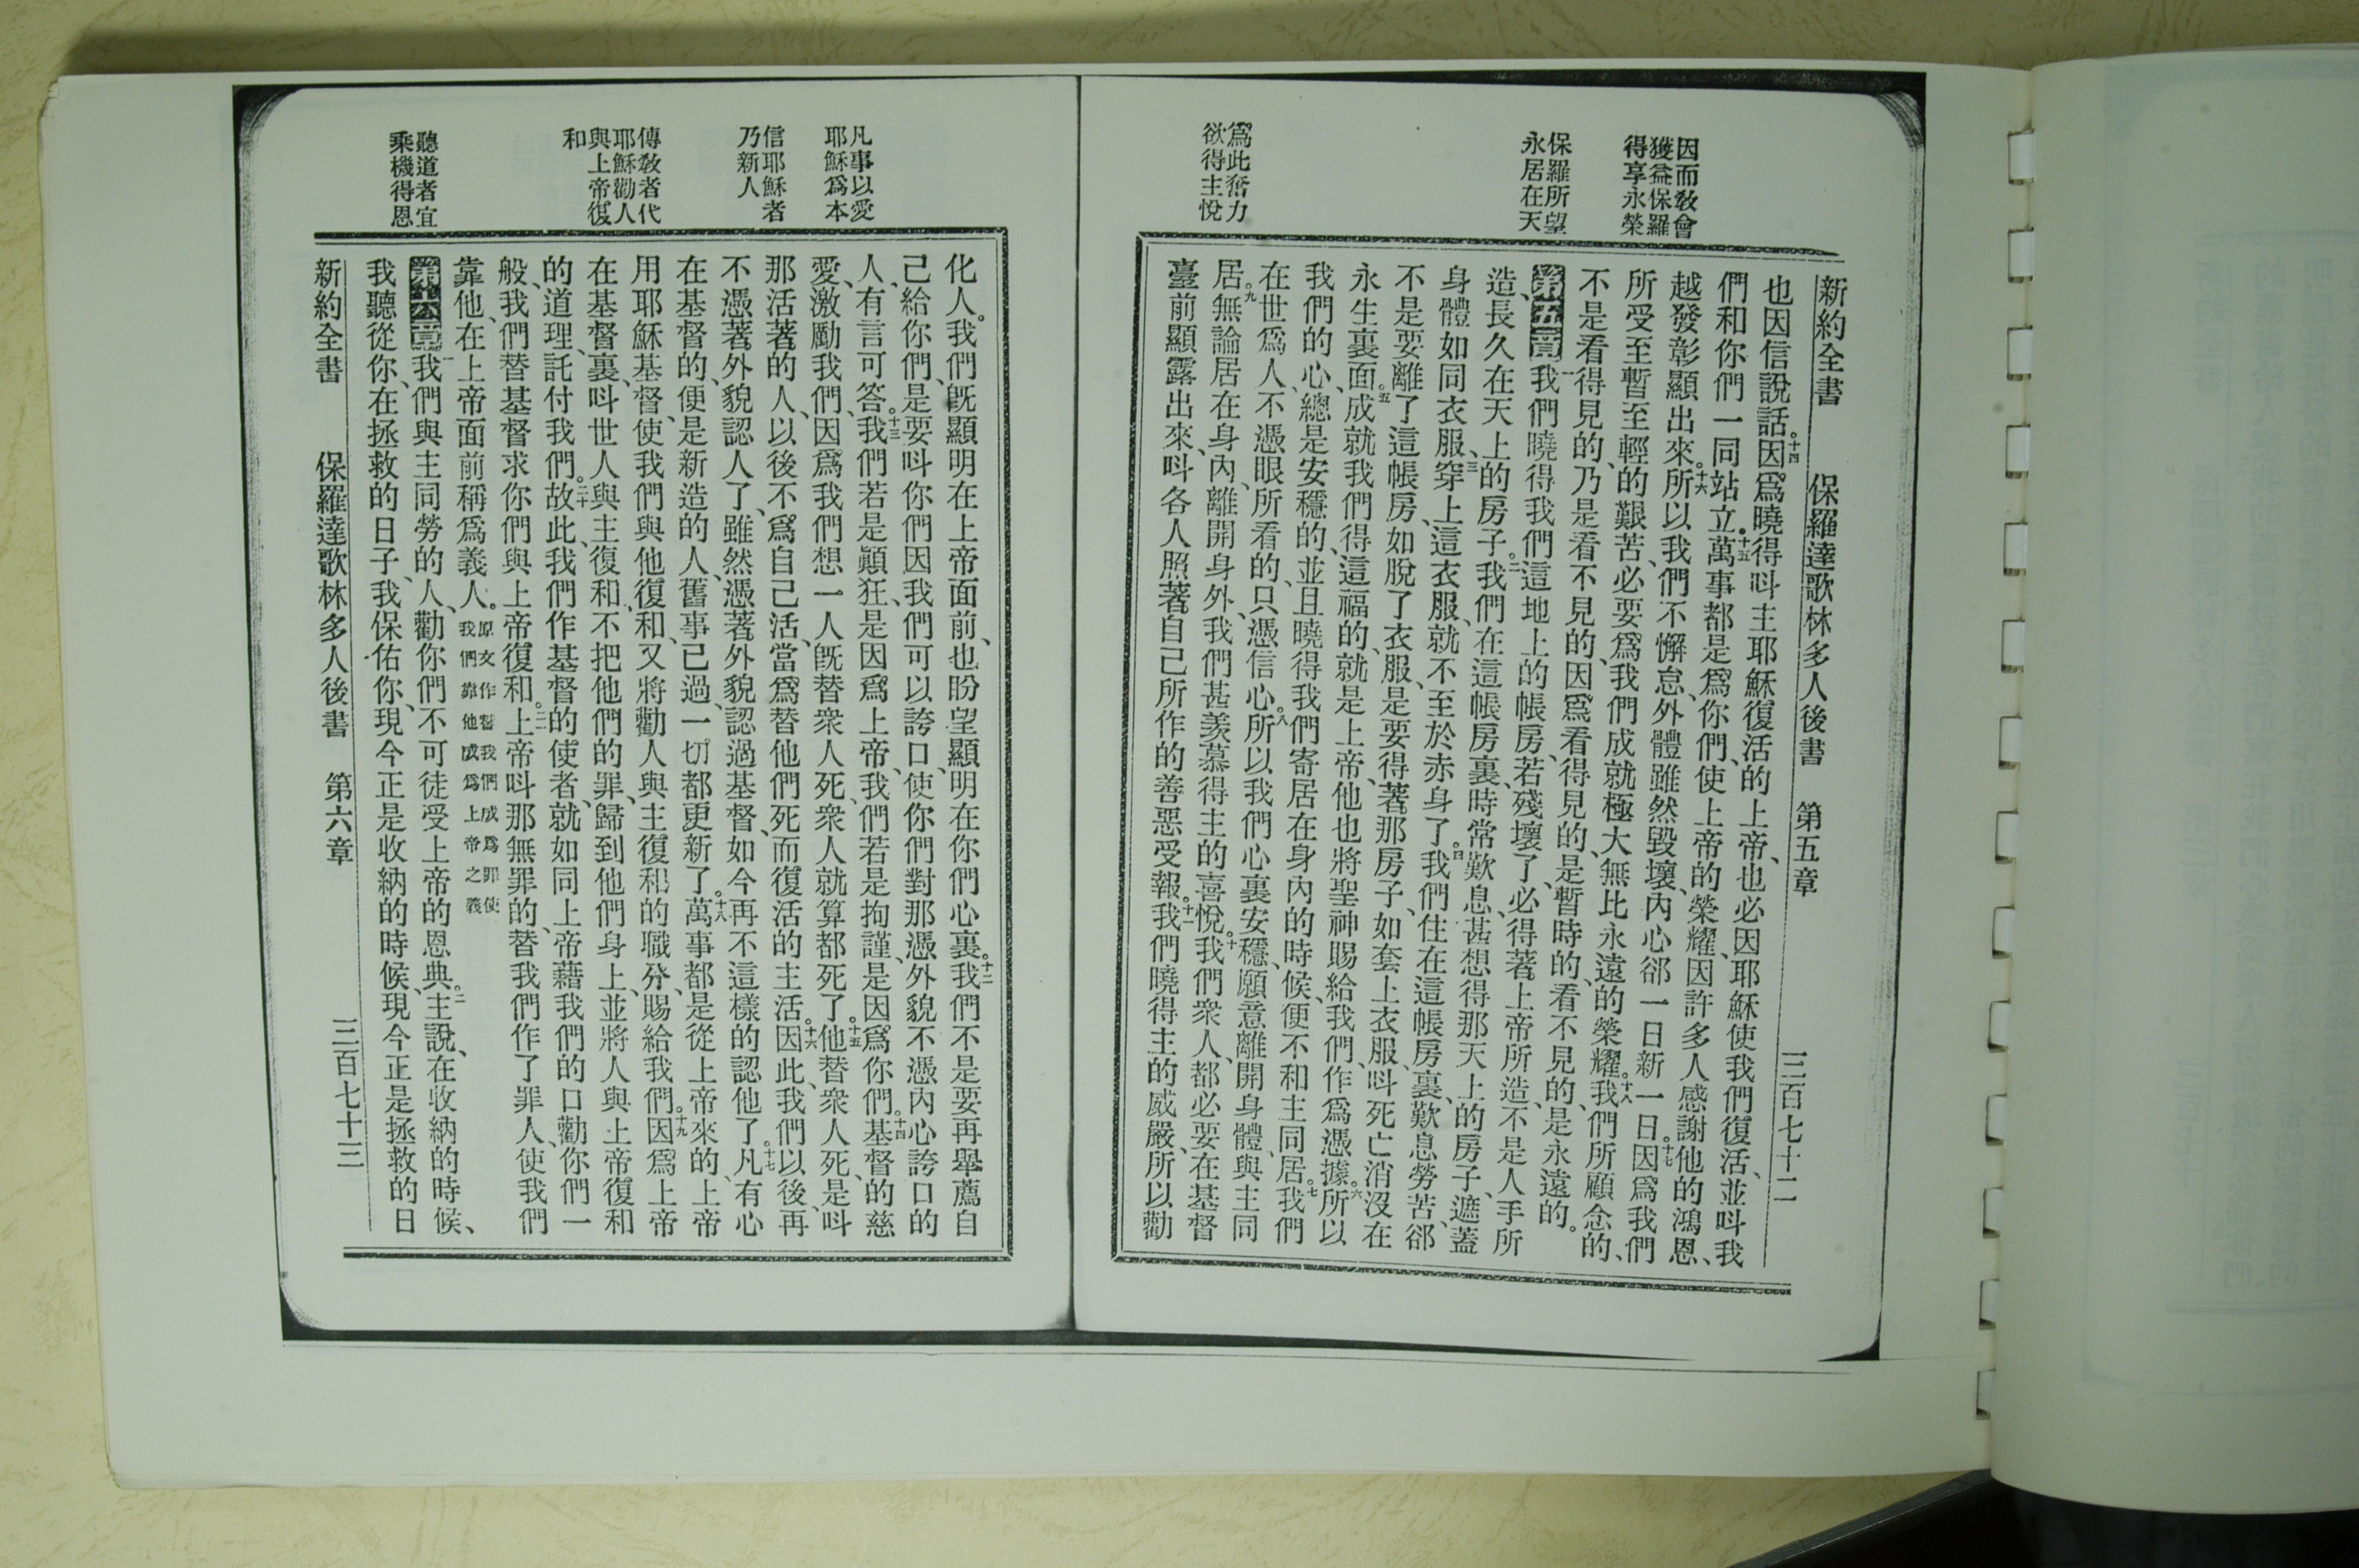 因而敎會
獲益保羅
得享永榮
保羅所望
永居在天
爲此奮力
欲得主悅
新約全書　保羅達歌林多人後書　第五章　三百七十二
也因信說話。十四因爲曉得呌主耶穌復活的上帝、也必因耶穌使我們復活、並呌我
們和你們一同站立。十五萬事都是爲你們、使上帝的榮耀、因許多人感謝他的鴻恩、
越發彰顯出來。十六所以我們不懈怠、外體雖然毀壞、內心郤一日新一日。十七因爲我們
所受至暫至輕的艱苦、必要爲我們成就極大無比永遠的榮耀。十八我們所顧念的、
不是看得見的、乃是看不見的、因爲看得見的、是暫時的、看不見的、是永遠的。
第五章一我們曉得我們這地上的帳房、若殘壞了、必得著上帝所造、不是人手所
造、長久在天上的房子。二我們在這帳房裏、時常歎息、甚想得那天上的房子、遮蓋
身體如同衣服、三穿上這衣服、就不至於赤身了。四我們住在這帳房裏、歎息勞苦、郤
不是要離了這帳房、如脫了衣服、是要得著那房子、如套上衣服、呌死亡消沒在
永生裏面。五成就我們得這福的、就是上帝、他也將聖神賜給我們、作爲憑據。六所以
我們的心、總是安穩的、並且曉得我們寄居在身內的時候、便不和主同居。七我們
在世爲人、不憑眼所看的、只憑信心。八所以我們心裏安穩、願意離開身體、與主同
居。九無論居在身內、離開身外、我們甚羨慕得主的喜悅。十我們衆人、都必要在基督
臺前顯露出來、呌各人照著自己所作的善惡受報。十一我們曉得主的威嚴、所以勸
凡事以愛
耶穌爲本
信耶穌者
乃新人
傳敎者代
耶穌勸人
與上帝復
和
聽道者宜
乘機得恩
化人。我們旣顯明在上帝面前、也盼望顯明在你們心裏。十二我們不是要再舉薦自
己給你們、是要呌你們因我們可以誇口、使你們對那憑外貌不憑內心誇口的
人、有言可答。十三我們若是顚狂、是因爲上帝、我們若是拘謹、是因爲你們。十四基督的慈
愛、激勵我們、因爲我們想一人旣替衆人死、衆人就算都死了。十五他替衆人死、是呌
那活著的人、以後不爲自己活、當爲替他們死而復活的主活。十六因此、我們以後、再
不憑著外貌認人了、雖然憑著外貌認過基督、如今再不這樣的認他了。十七凡有心
在基督的、便是新造的人、舊事已過、一切都更新了。十八萬事都是從上帝來的、上帝
用耶穌基督、使我們與他復和、又將勸人與主復和的職分、賜給我們。十九因爲上帝
在基督裏、呌世人與主復和、不把他們的罪、歸到他們身上、並將人與上帝復和
的道理、託付我們。二十故此、我們作基督的使者、就如同上帝藉我們的口勸你們一
般、我們替基督求你們與上帝復和。二一上帝呌那無罪的、替我們作了罪人、使我們
靠他、在上帝面前稱爲義人。原文作替我們成爲罪使我們靠他成爲上帝之義
第六章一我們與主同勞的人、勸你們不可徒受上帝的恩典。二主說、在收納的時候、
我聽從你、在拯救的日子、我保佑你、現今正是收納的時候、現今正是拯救的日
新約全書　保羅達歌林多人後書　第六章　三百七十三